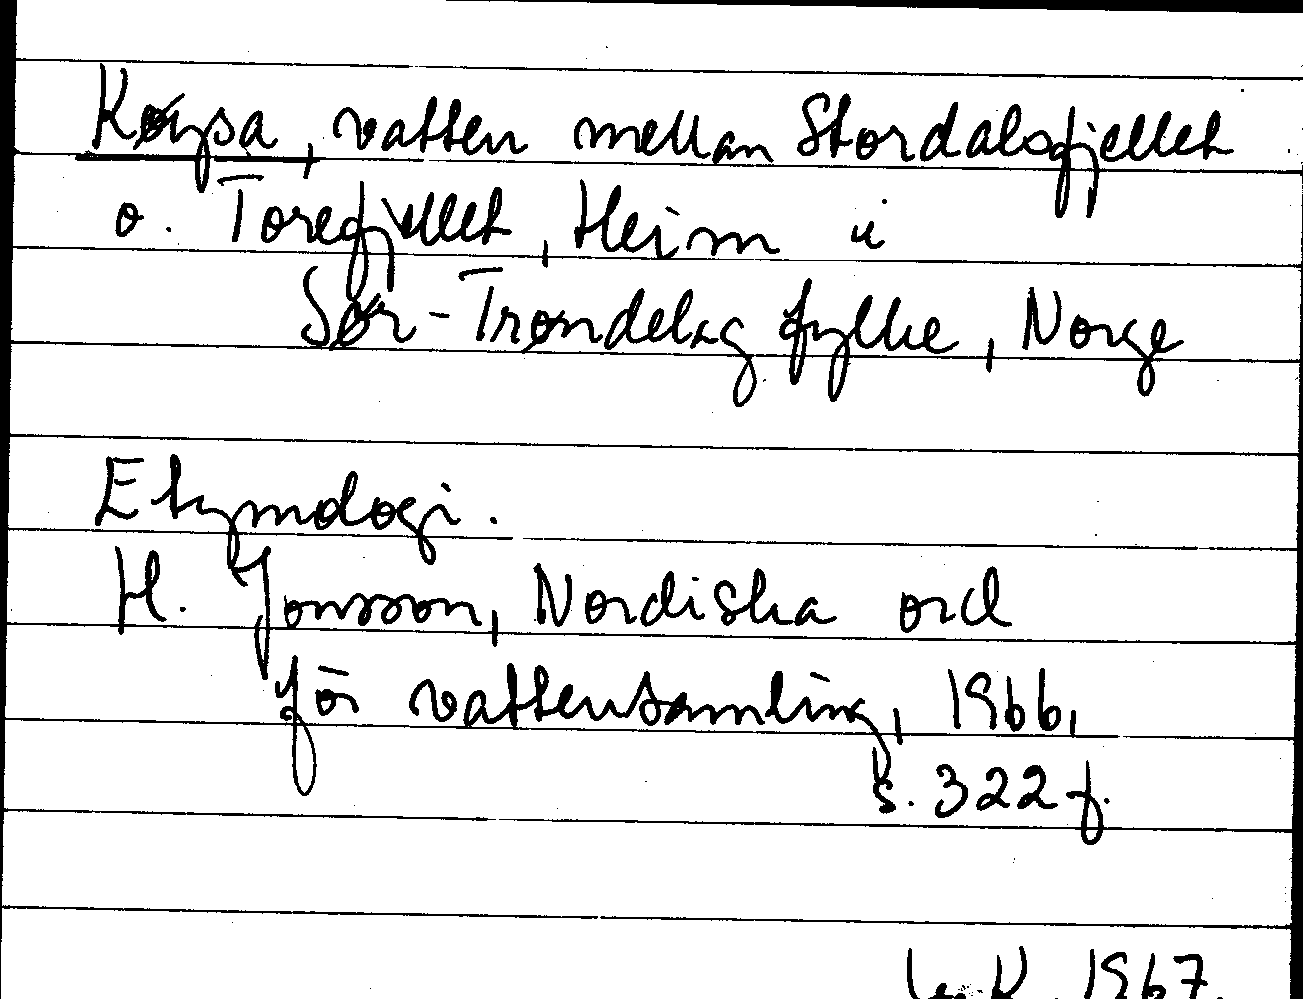 Køysa, vatten mellan Stordalsfjellet
o. Torefjellet, Heim i
Sør-Trøndelag fylke, Norge
Etymologi.
H. Jonsson, Nordiska ord
för vattensamling, 1966,
s. 322 f.
1967.